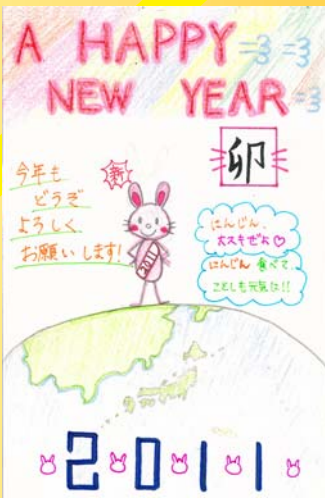 A HAPPY
NEW YEAR
卯
新
今年も
どうぞ
よろしく
お願いします!
2011
にんじん、
大スキだよ♡
にんじん 食べて、
ことしも元気に!!
2011